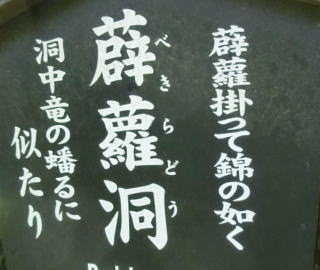 薜蘿掛って錦の如く
薜蘿洞
べきらどう
洞中竜の蟠るに
似たり